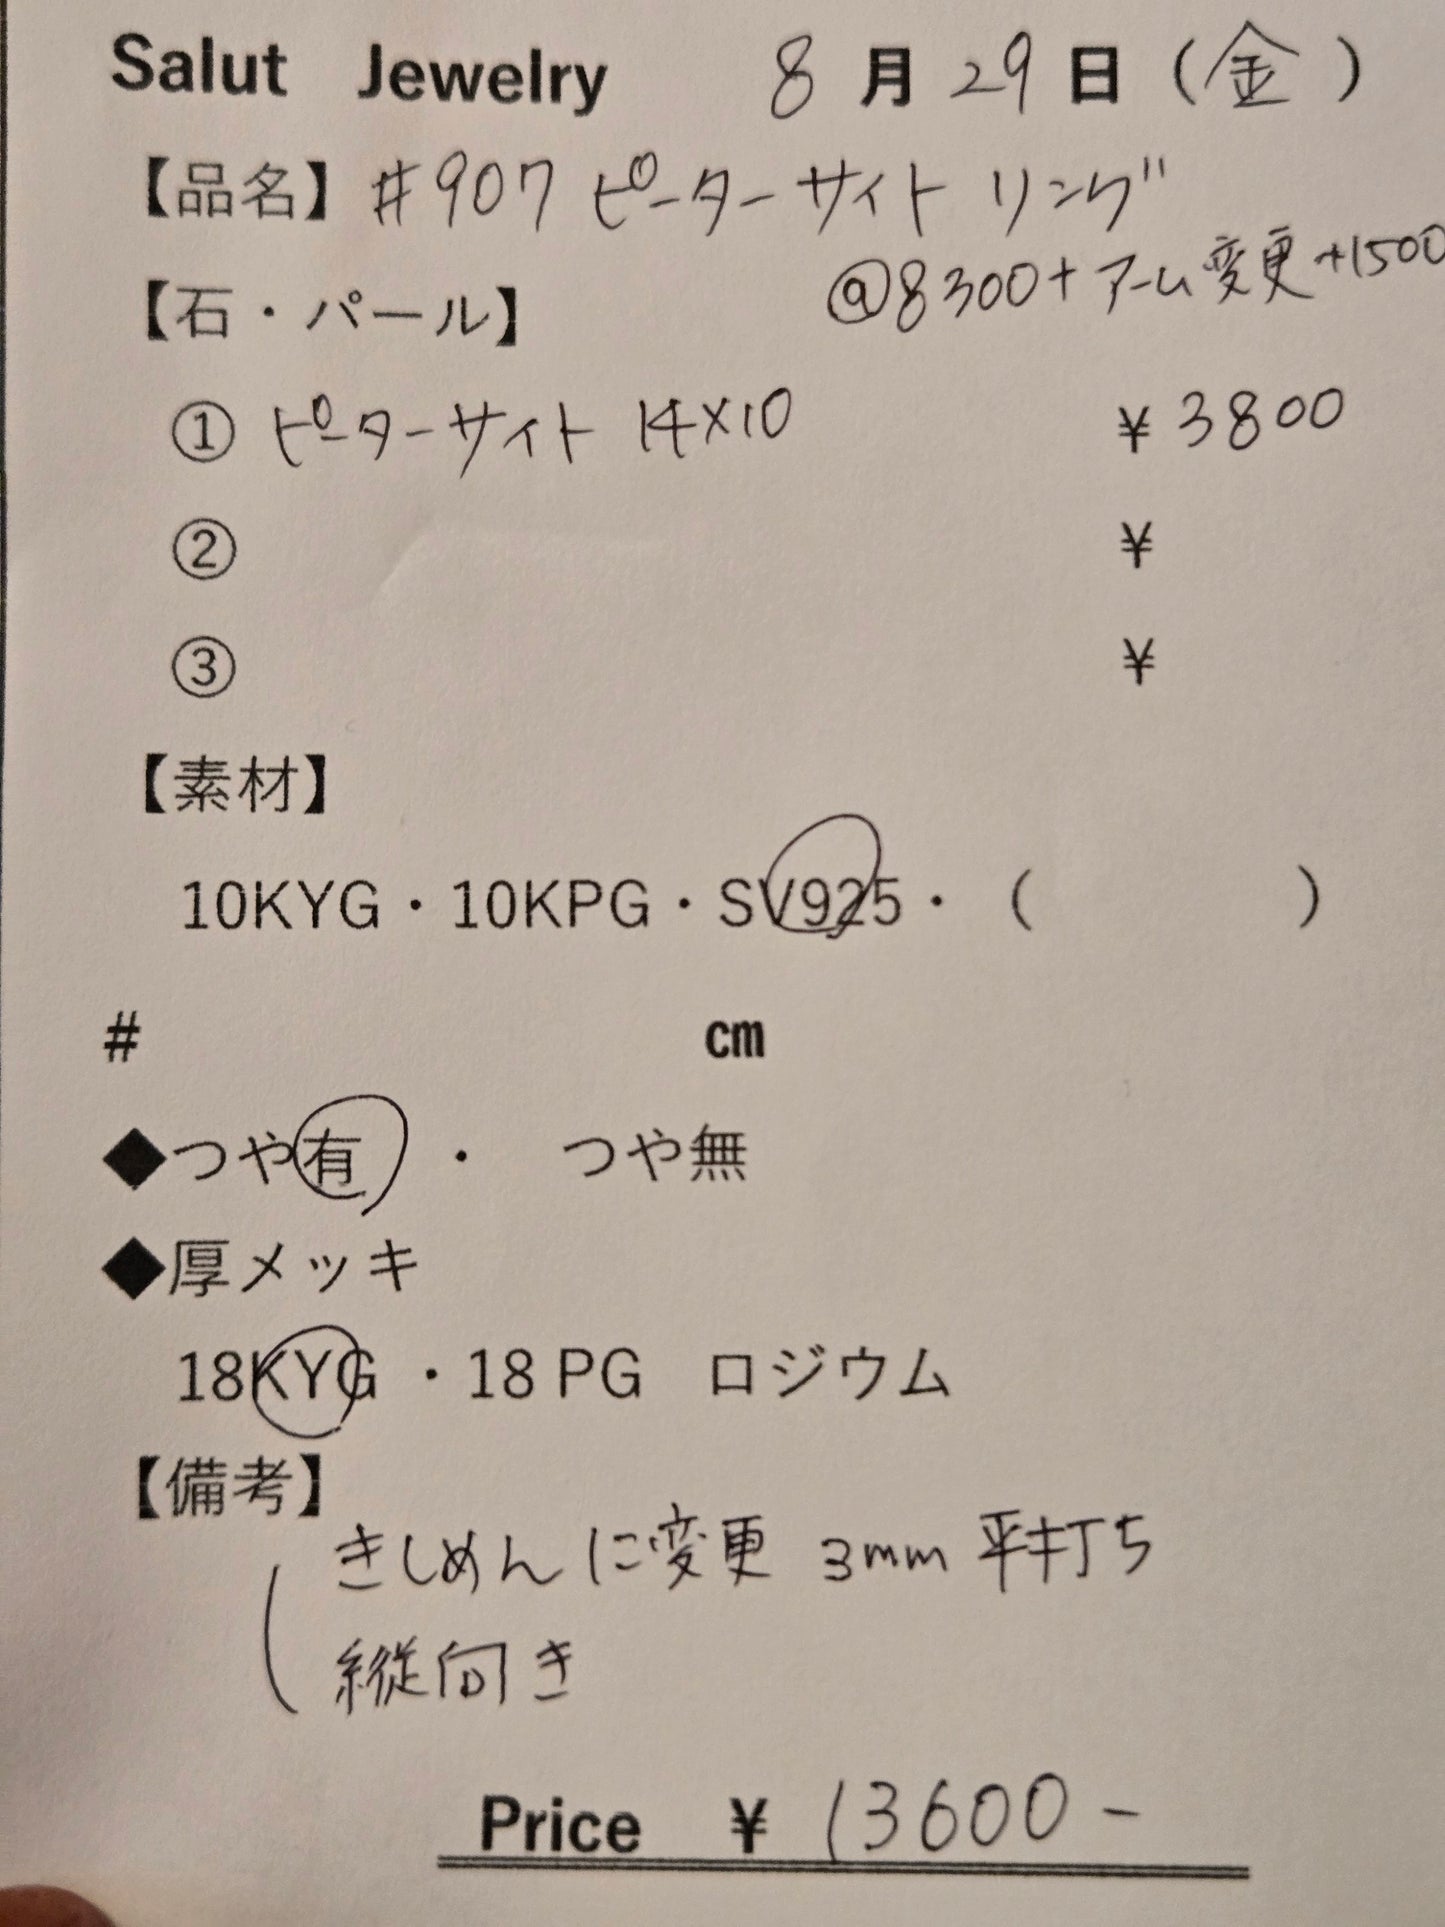 Salut Jewelry 8月29日(金)
【品名】#907 ピーターサイト リング
@8300+アーム変更+1500
【石・パール】
① ピーターサイト 14×10 ¥3800
② ¥
③ ¥
【素材】
10KYG・10KPG・SV925・( )
# cm
◆つや有 ・ つや無
◆厚メッキ
18KYG ・18 PG ロジウム
【備考】
きしめんに変更 3mm 平打ち
縦向き
Price ¥ 13600-